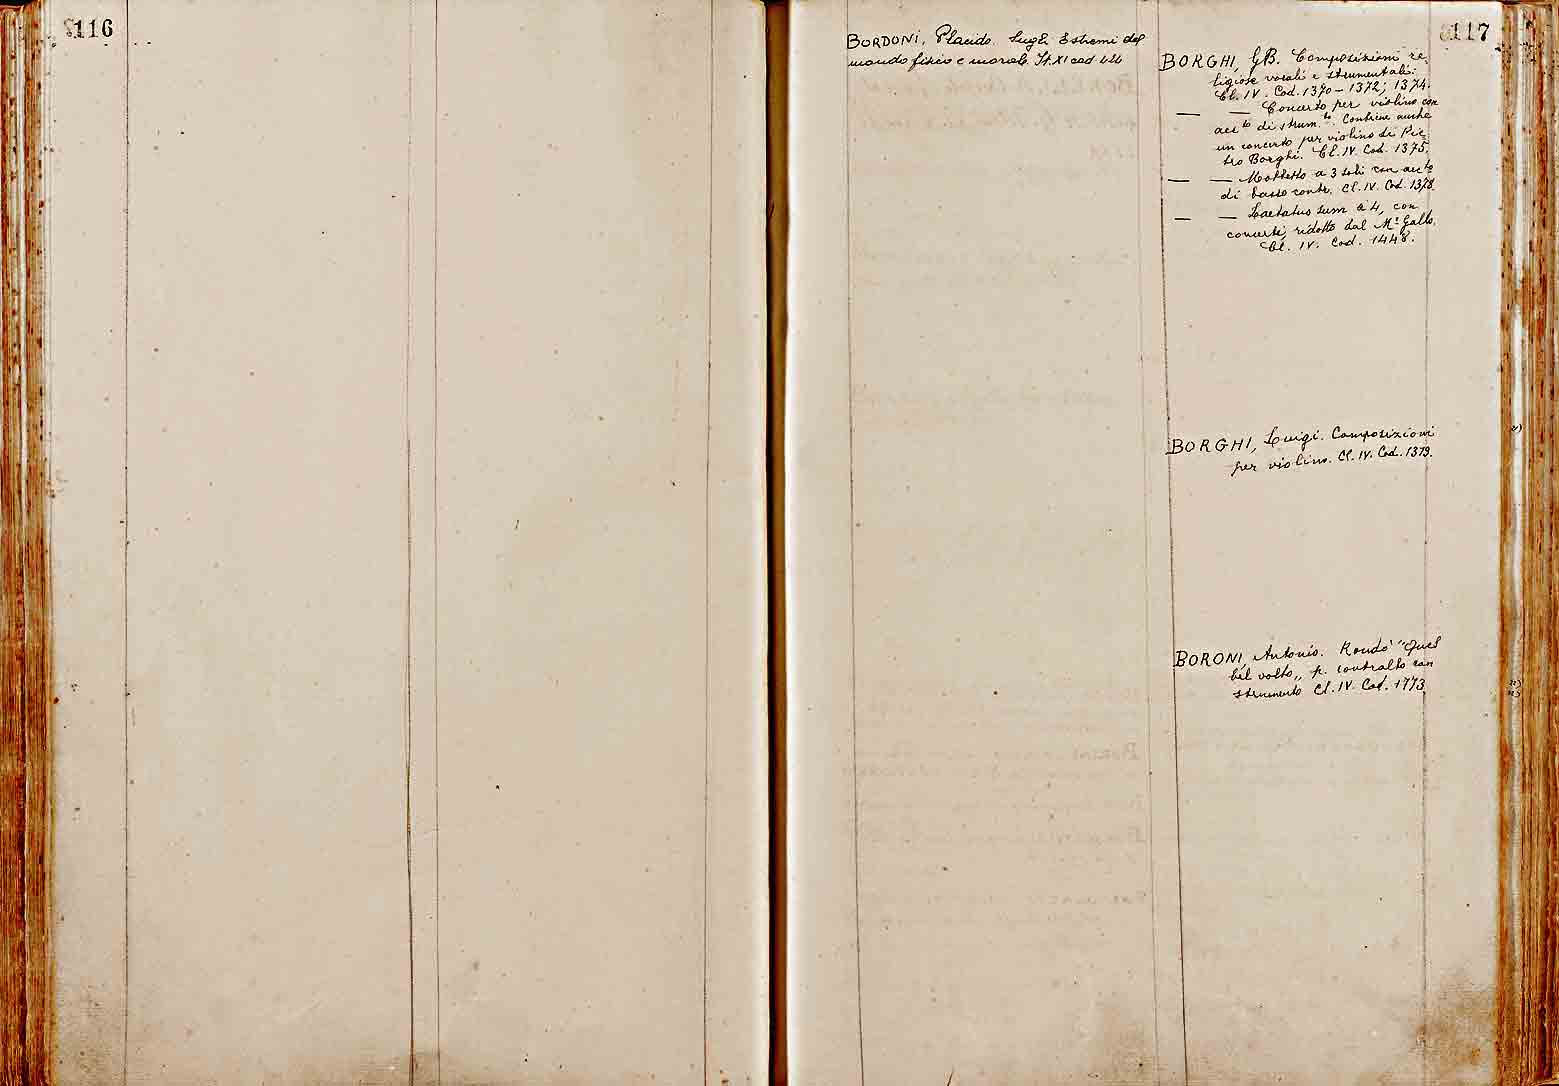 116
117
BORDONI, Placido. Sugli Estremi del
mondo fisico e morale. It. XI cod
BORGHI, GB. Composizioni re-
ligiose vocali e strumentali.
Cl. IV. Cod. 1370-1372; 1374.
— — Concerto per violino con
acc.to di strum.ti. Contiene anche
un concerto per violino di Pie-
tro Borghi. Cl. IV. Cod. 1375.
— — Mottetto a 3 soli con acc.to
di basso cont. Cl. IV. Cod. 1378.
— — Laetatus sum a 4, con
concerti, ridotto dal M° Gallo.
Cl. IV. Cod. 1448.
BORGHI, Luigi. Composizioni
per violino. Cl. IV. Cod. 1379.
BORONI, Antonio. Rondò "Quel
bel volto„ p. contralto con
strumento Cl. IV. Cod. 1773.